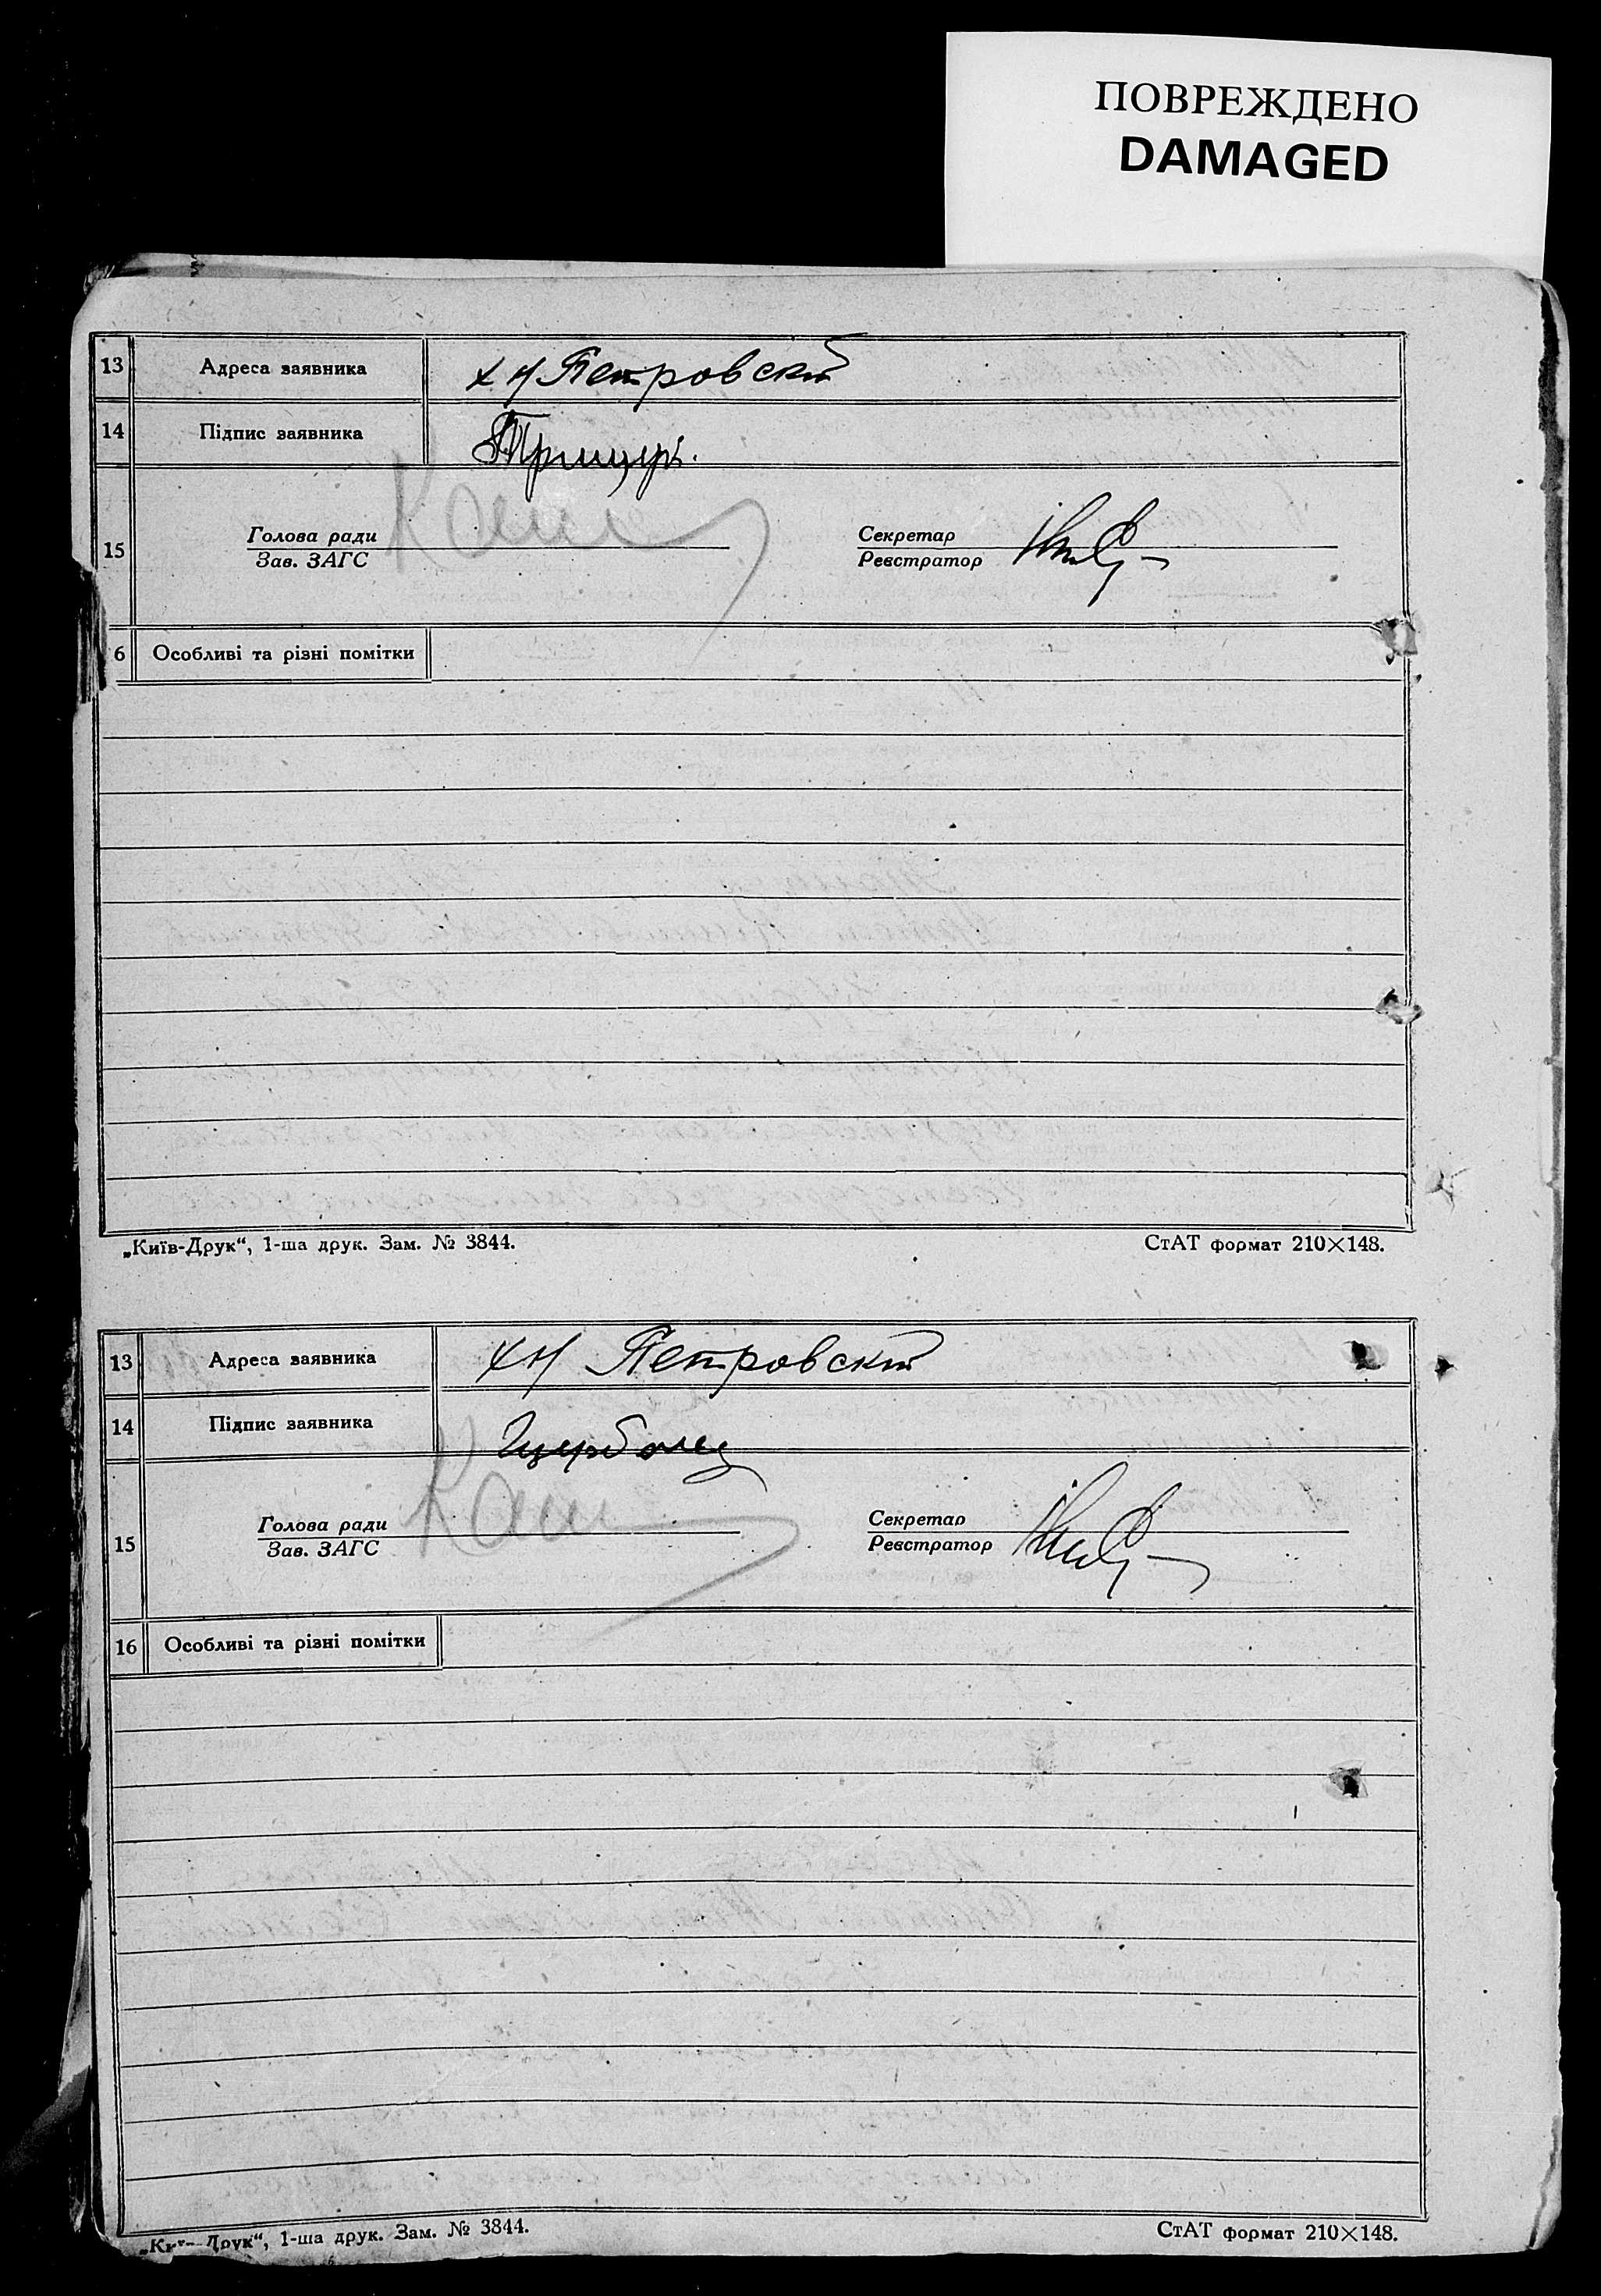 ПОВРЕЖДЕНО
DAMAGED
13 Адреса заявника х Н Петровский
14 Підпис заявника
Голова ради Секретар
15
Зав. ЗАГС Реєстратор
6 Особливі та різні помітки
„Київ-Друк“, 1-ша друк. Зам. № 3844. СтАТ формат 210×148.
13 Адреса заявника х Н Петровский
14 Підпис заявника
Голова ради Секретар
15
Зав. ЗАГС Реєстратор
16 Особливі та різні помітки
Друк“, 1-ша друк. Зам. № 3844. СтАТ формат 210×148.